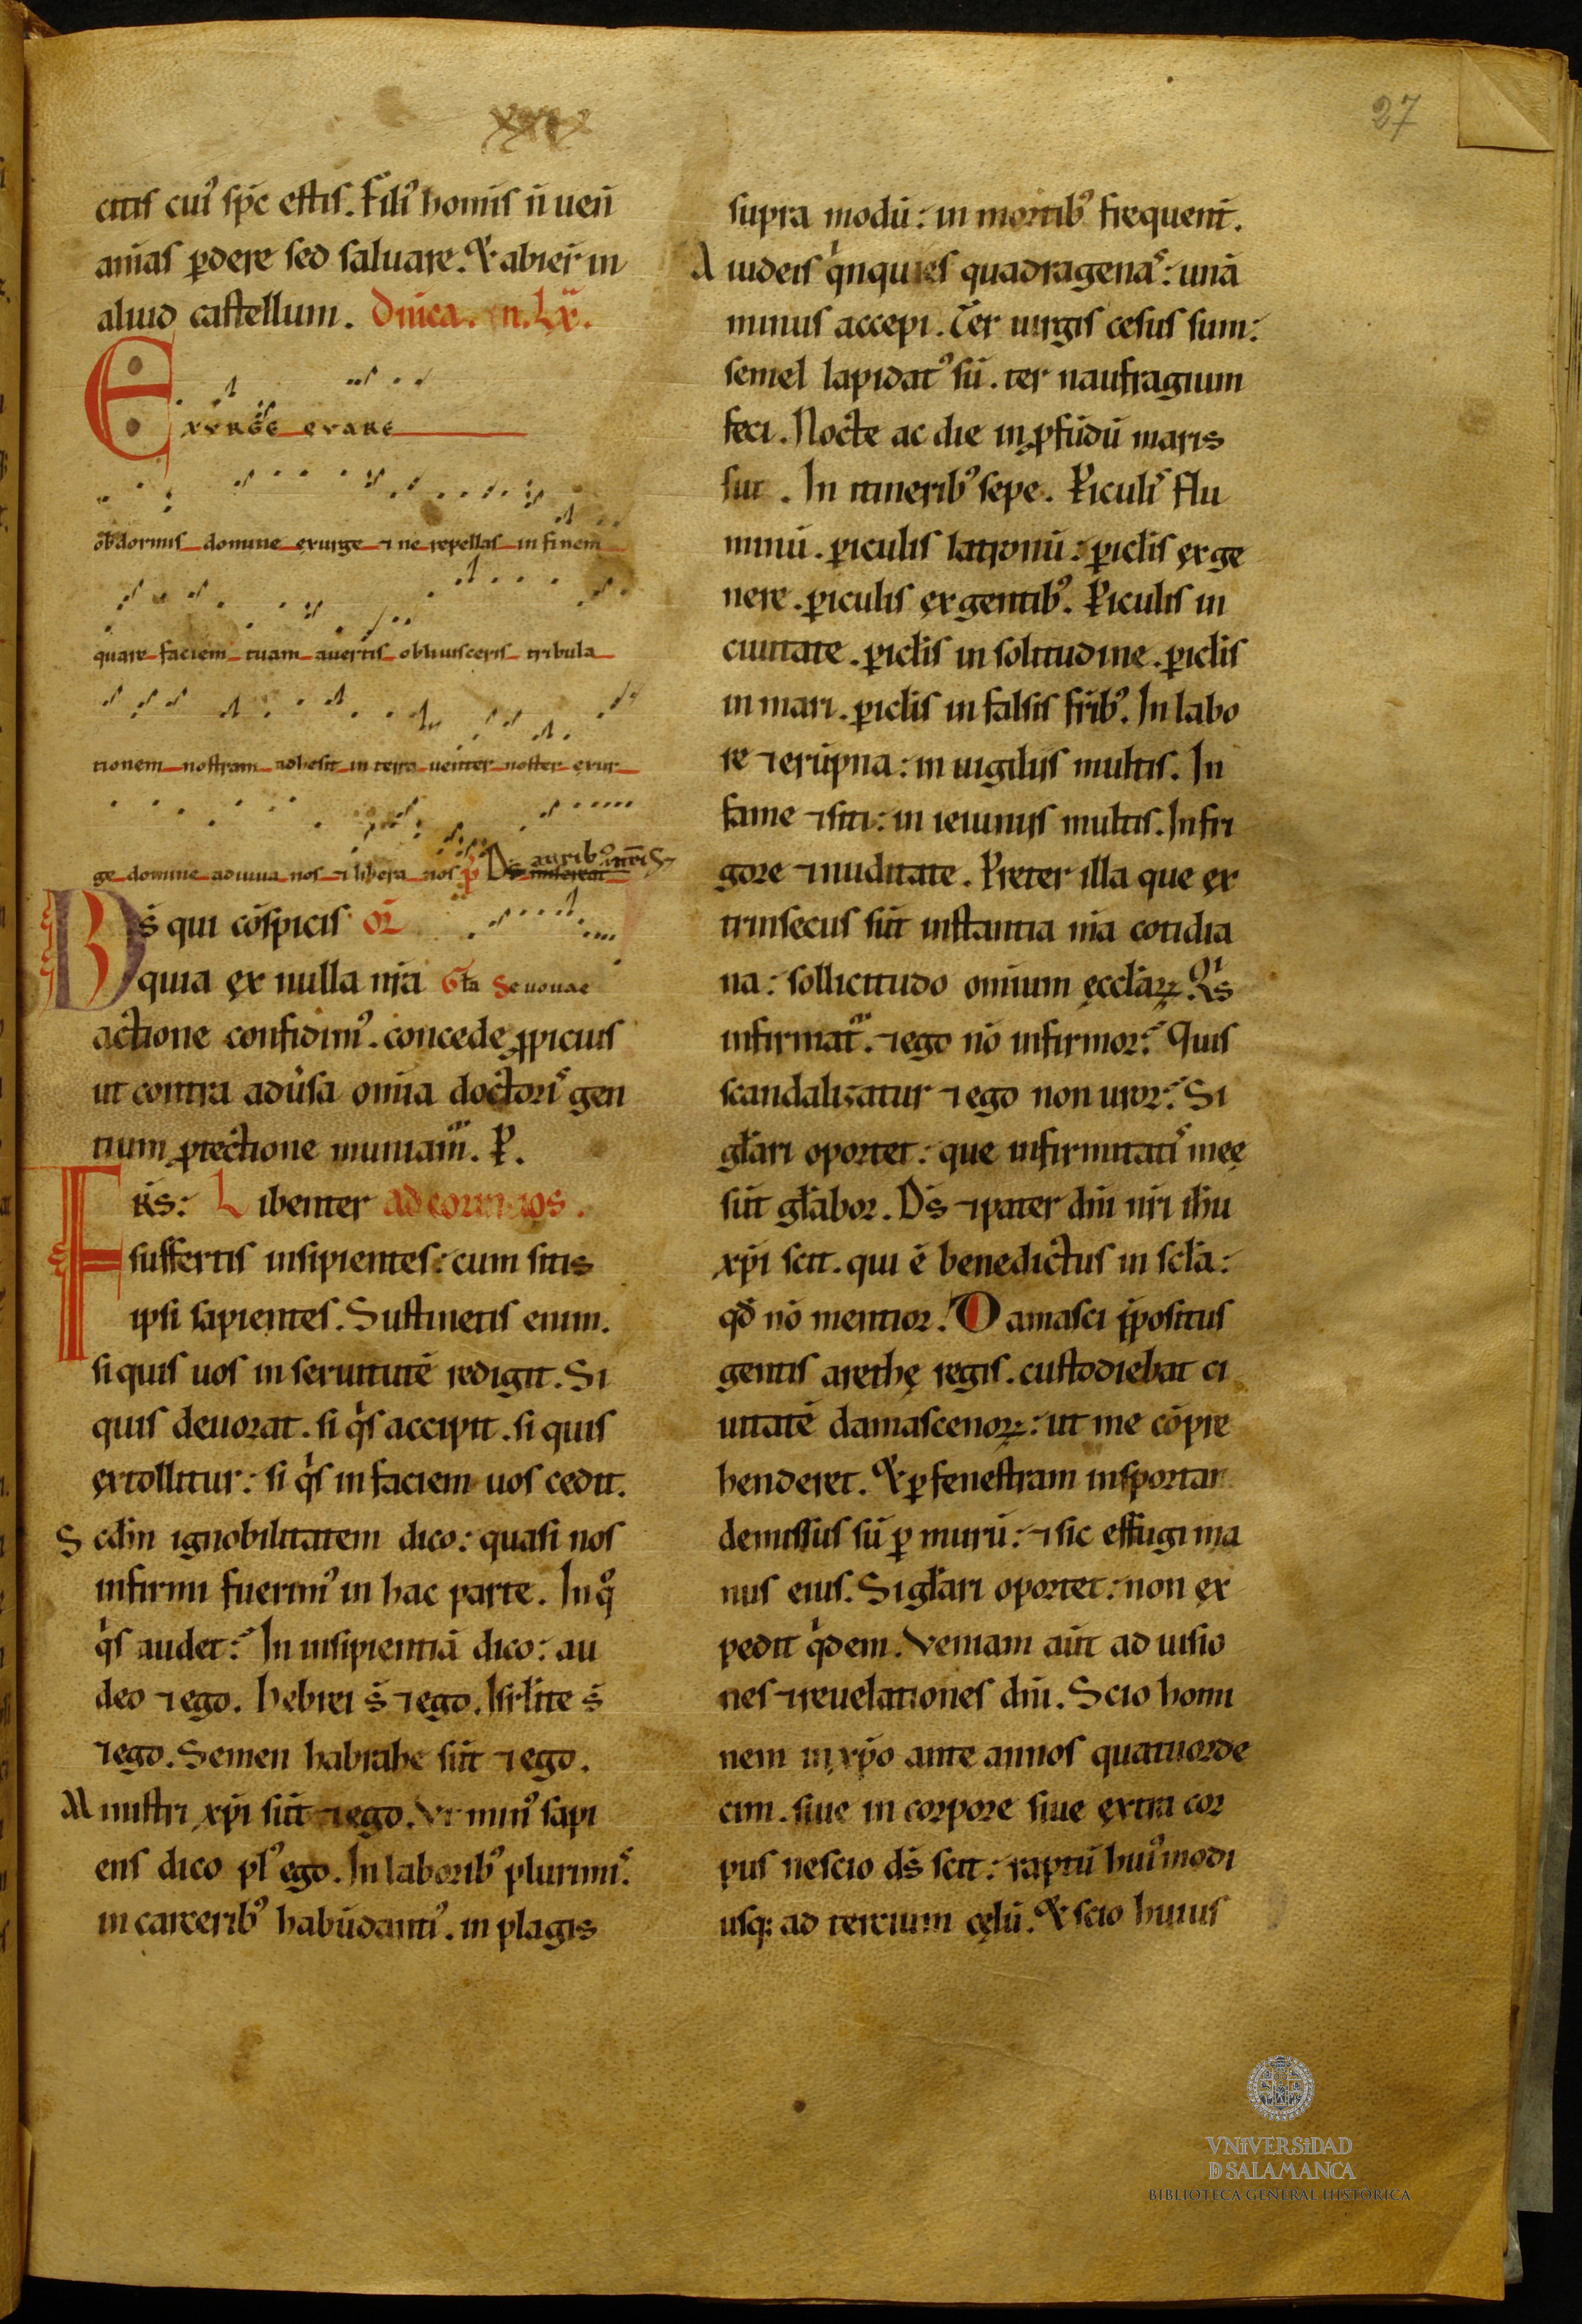 27
citis cui᾽ sp̄c estis. Fili᾽ homīs n̄ ueń
aīas ꝑdere sed saluare. Et abier̄ in
aliud castellum. Dn̄ica. in. Lx̄.
EXVRGE QVARE
obdormis domine exurge ⁊ ne repellas in finem
quare faciem tuam auertis obliuisceris tribula
tionem nostram adhesit in terra uenter noster exur
ge domine adiuua nos ⁊ libera nos p̄ Ds̄ aurib᾽ nr̄is
Ds̄ qui cōspicis or̄
quia ex nulla nr̄a Gła Seuouae
actione confidim᾽. concede ꝓpicius
ut contra adũsa om̄ia doctori᾽ gen
tium ꝓtectione muniam̃. P.
FR̄s: Libenter ad corintios.
suffertis insipientes: cum sitis
ipsi sapientes. Sustinetis enim.
si quis uos in seruitutē redigit. Si
quis deuorat. si q̇s accipit. si quis
extollitur: si q̇s in faciem uos cedit.
Scd̄m ignobilitatem dico: quasi nos
infirmi fuerim᾽ in hac parte. In qͦ
q̇s audet: In insipientiā dico: au
deo ⁊ ego. hebrei s̄ ⁊ ego. Isrłite s̄
⁊ ego. Semen habrahe sūt ⁊ ego.
Ministri xp̄i sūt ⁊ ego. Vt min᾽ sapi
ens dico pl᾽ ego. In laborib᾽ plurimi᾽.
in carcerib᾽ habūdanti᾽. in plagis
supra modū: in mortib᾽ frequent̄.
A iudeis q̇nquies quadragena᾽: unā
minus accepi. Ter uirgis cesus sum:
semel lapidat᾽ sū. ter naufragium
feci. Nocte ac die in ꝓfūdū maris
fui. In itinerib᾽ sepe. Ꝑiculi᾽ flu
minū. ꝑiculis latronū: ꝑicłis ex ge
nere. ꝑiculis ex gentib᾽. Ꝑiculis in
ciuitate. ꝑicłis in solitudine. ꝑicłis
in mari. ꝑicłis in falsis fr̄ib᾽. In labo
re ⁊ erūpna: in uigiliis multis. In
fame ⁊ siti: in ieiuniis multis. In fri
gore ⁊ nuditate. Preter illa que ex
trinsecus sūt instantia m̄a cotidia
na: sollicitudo omium ęccłaꝝ. Qͥs
infirmat᷑. ⁊ ego nō infirmor: Quis
scandalizatur ⁊ ego non uror: Si
głari oportet: que infirmitati᾽ meę
sūt głabor. Ds̄ ⁊ pater dn̄i nr̄i ih̄u
xp̄i scit. qui ē benedictus in scła:
qđ nō mentior. Damasci p̄positus
gentis arethę regis. custodiebat ci
uitatē damascenoꝝ: ut me cōpre
henderet. Et ꝑ fenestram in sportar
demissus sū ꝑ murū: ⁊ sic effugi ma
nus eius. Si głari oportet: non ex
pedit q̇dem. Veniam aūt ad uisio
nes ⁊ reuelationes dn̄i. Scio homi
nem in xp̄o ante annos quatuorde
cim. siue in corpore siue extra cor
pus nescio ds̄ scit: raptū hui᾽modi
usq; ad tercium cęlū. Et scio huius
VNiVERSiDAD
D SALAMANCA
BIBLIOTECA GENERAL HISTÓRICA